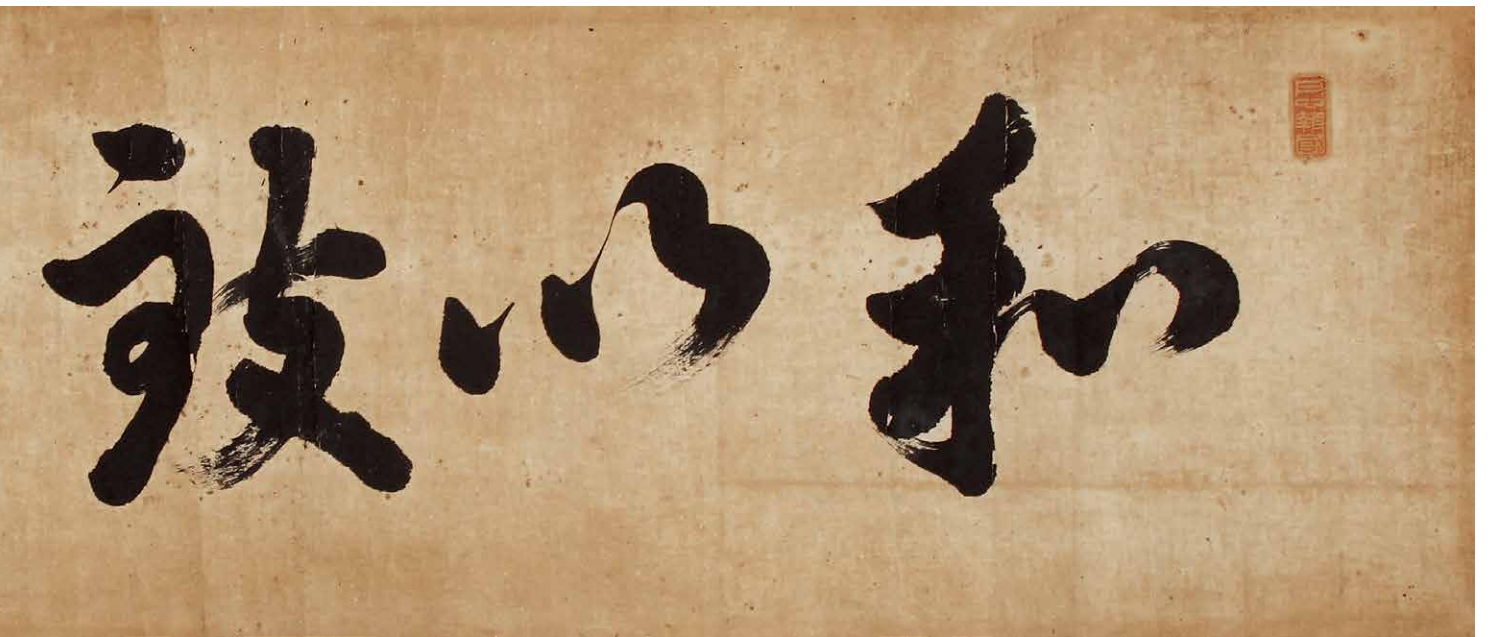 和以致